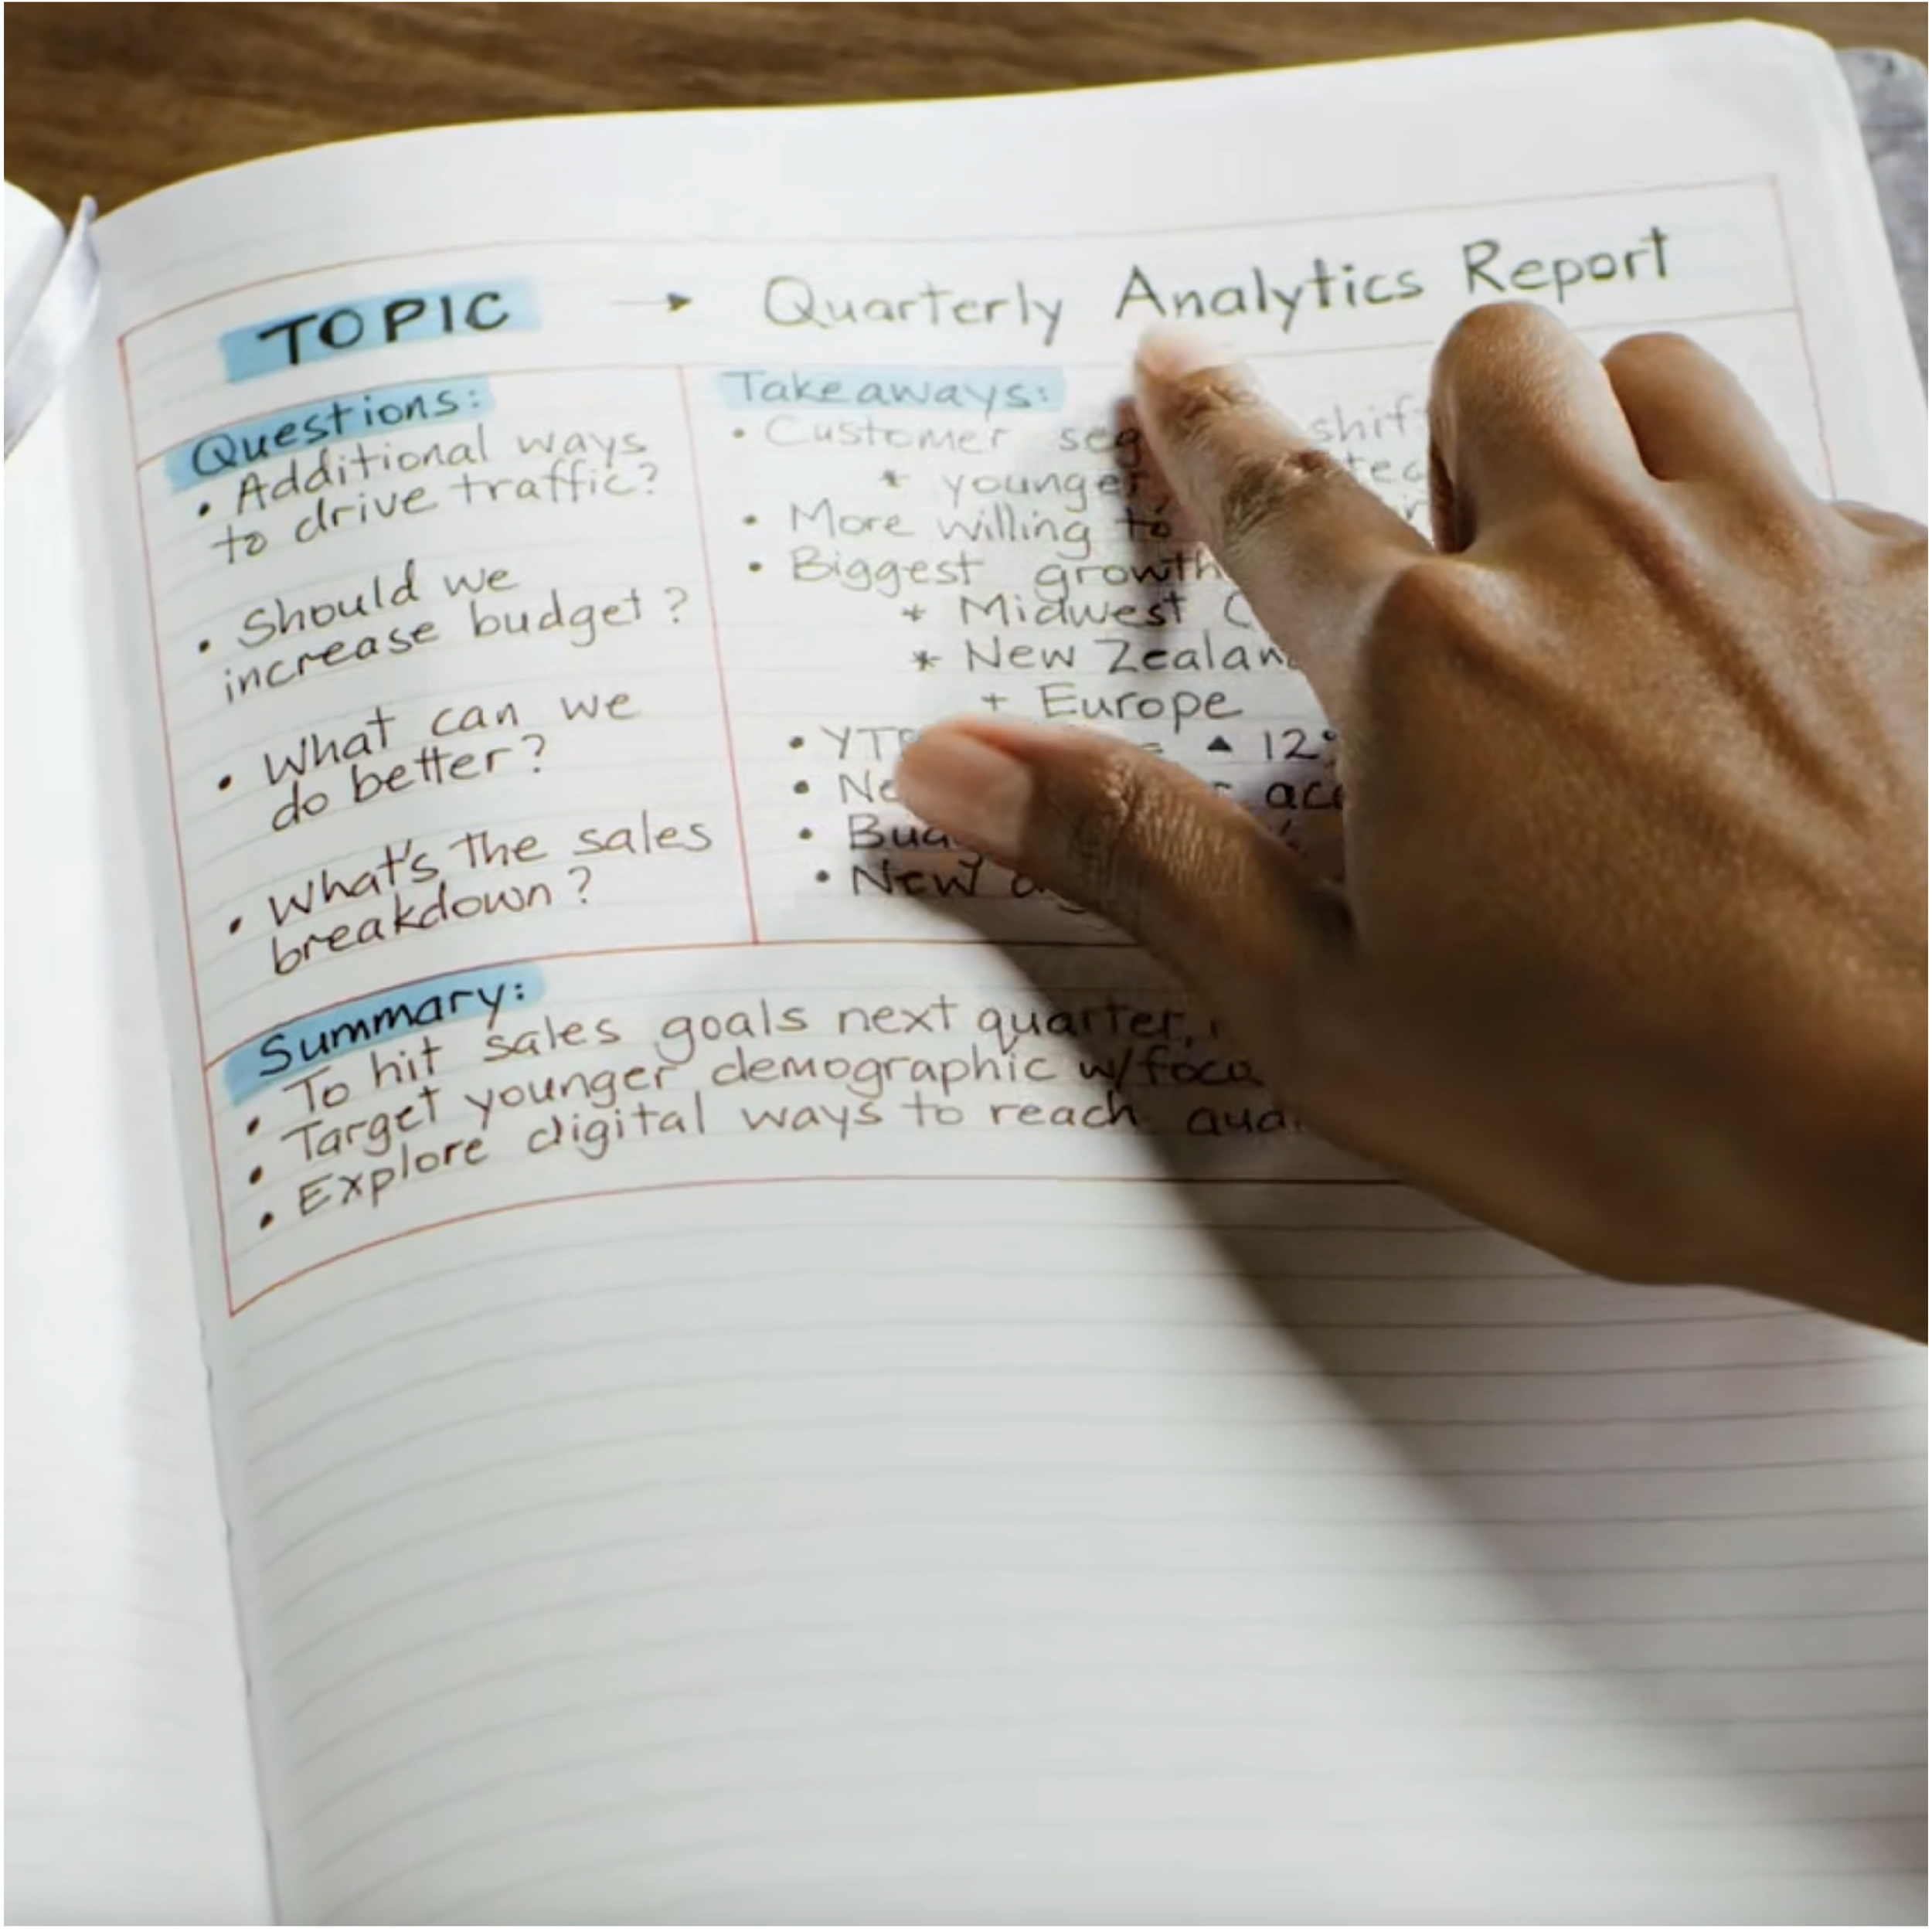 TOPIC → Quarterly Analytics Report
Questions:
• Additional ways
to drive traffic?
• Should we
increase budget?
• What can we
do better?
• What's the sales
breakdown?
Takeaways:
• Customer
* younger
• More willing to
• Biggest growth
* Midwest
* New
+ Europe
• ▲ 12
•
•
• New
Summary:
• To hit sales goals next quarter,
• Target younger demographic
• Explore digital ways to reach